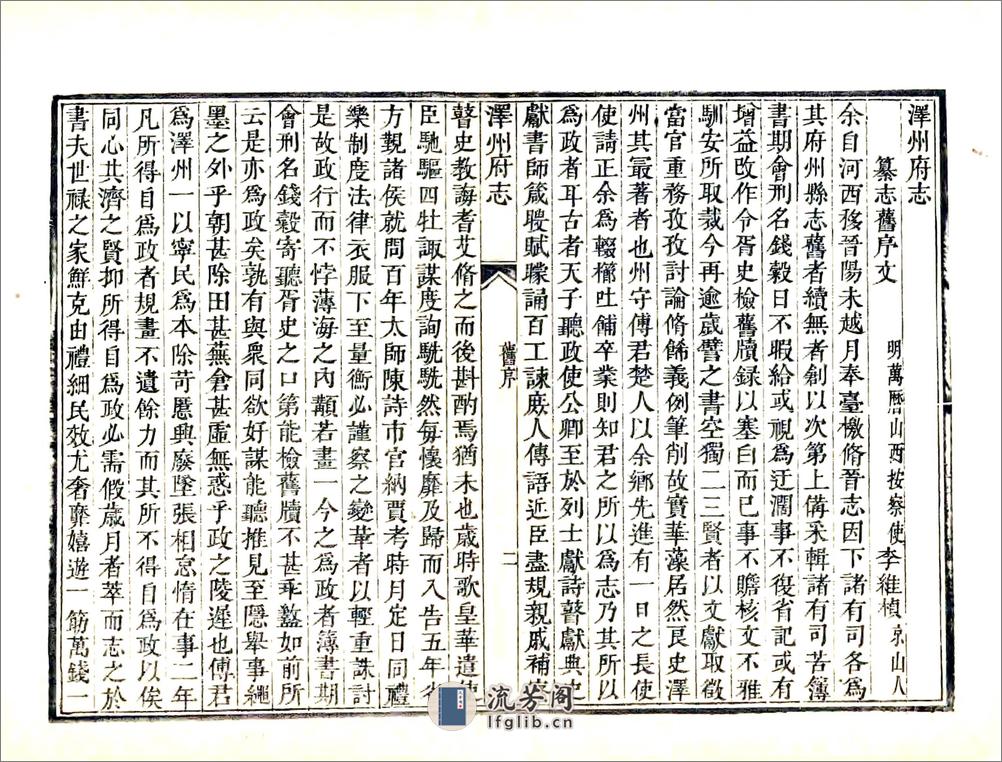 澤州府志
纂志舊序文
明萬曆山西按察使李維楨京山人
余自河西移晉陽未越月奉臺檄脩晉志因下諸有司各爲
其府州縣志舊者續無者創以次第上備采輯諸有司苦簿
書期會刑名錢穀日不暇給或視爲迂濶事不復省記或有
增益改作令胥史檢舊牘録以塞白而已事不贍核文不雅
馴安所取裁今再逾歲譬之書空獨一二三賢者以文獻取徵
當官重務孜孜討論脩餙義例筆削故實華藻居然良史澤
州其最著者也州守傅君楚人以余鄉先進有一日之長使
使請正余爲輟櫛吐餔卒業則知君之所以爲志乃其所以
爲政者耳古者天子聽政使公卿至於列士獻詩瞽獻典史
獻書師箴瞍賦矇誦百工諫庶人傳語近臣盡規親戚補察
澤州府志
舊序
二
瞽史教誨耆艾脩之而後斟酌焉猶未也歲時歌皇華遣使
臣馳驅四牡諏謀度詢駪駪然每懷靡及歸而入告五年省
方覲諸侯就問百年太師陳詩市官納賈考時月定日同禮
樂制度法律衣服下至量衡必謹察之變革者以輕重誅討
是故政行而不悖薄海之內顜若畫一今之爲政者簿書期
會刑名錢穀寄聽胥史之口第能檢舊牘不甚乖盭如前所
云是亦爲政矣孰有與衆同欲好謀能聽推見至隱舉事繩
墨之外乎朝甚除田甚蕪倉甚虛無惑乎政之陵遲也傅君
爲澤州一以寧民爲本除苛慝興廢墜張相怠惰在事二年
凡所得自爲政者規畫不遺餘力而其所不得自爲政以俟
同心共濟之賢抑所得自爲政必需假歲月者萃而志之於
書夫世禄之家鮮克由禮細民效尤奢靡嬉遊一筯萬錢一
流芳阁
lfglib.cn